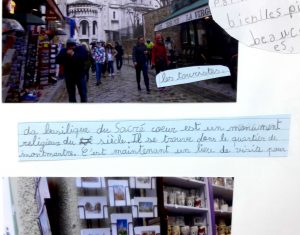 bien les pi
beauc
es,
les touristes.
La basilique du Sacré coeur est un monument
religieux du siècle. Il se trouve dans le quartier de
montmartre. C'est maintenant un lieu de visite pour